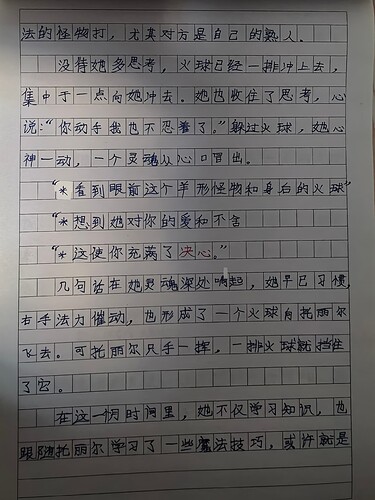 法的怪物打，尤其对方是自己的熟人。
没待她多思考，火球已经一排冲上去，
集中于一点向她冲去。她也收住了思考，心
说：“你动手我也不忍着了。”躲过火球，她心
神一动，一个灵魂从心口冒出。
“*看到眼前这个羊形怪物和身后的火球”
“*想到她对你的爱和不舍
“*这使你充满了决心。”
几句话在她灵魂深处响起，她早已习惯，
右手法力催动，也形成了一个火球向托丽尔
飞去。可托丽尔只手一挥，一排火球就挡住
了它。
在这一段时间里，她不仅学习知识，也
跟随托丽尔学习了一些魔法技巧，或许就是